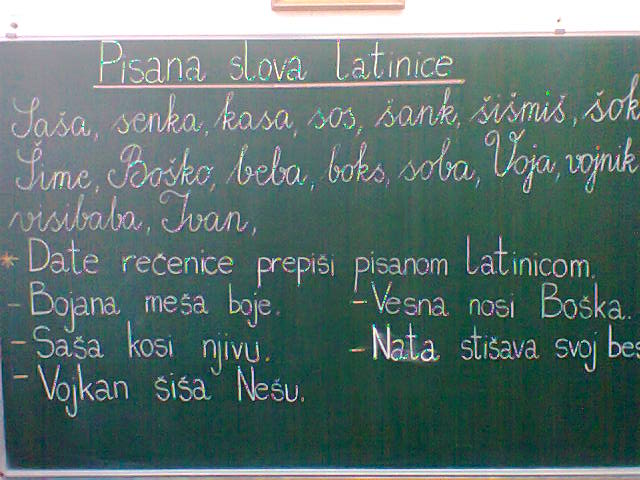 Pisana slova latinice
Saša, senka, kasa, sos, šank, šišmiš, šok
Šime, Boško, beba, boks, soba, Voja, vojnik
visibaba, Ivan,
* Date rečenice prepiši pisanom latinicom.
- Bojana meša boje. - Vesna nosi Boška.
- Saša kosi njivu. - Nata stišava svoj bes
- Vojkan šiša Nešu.